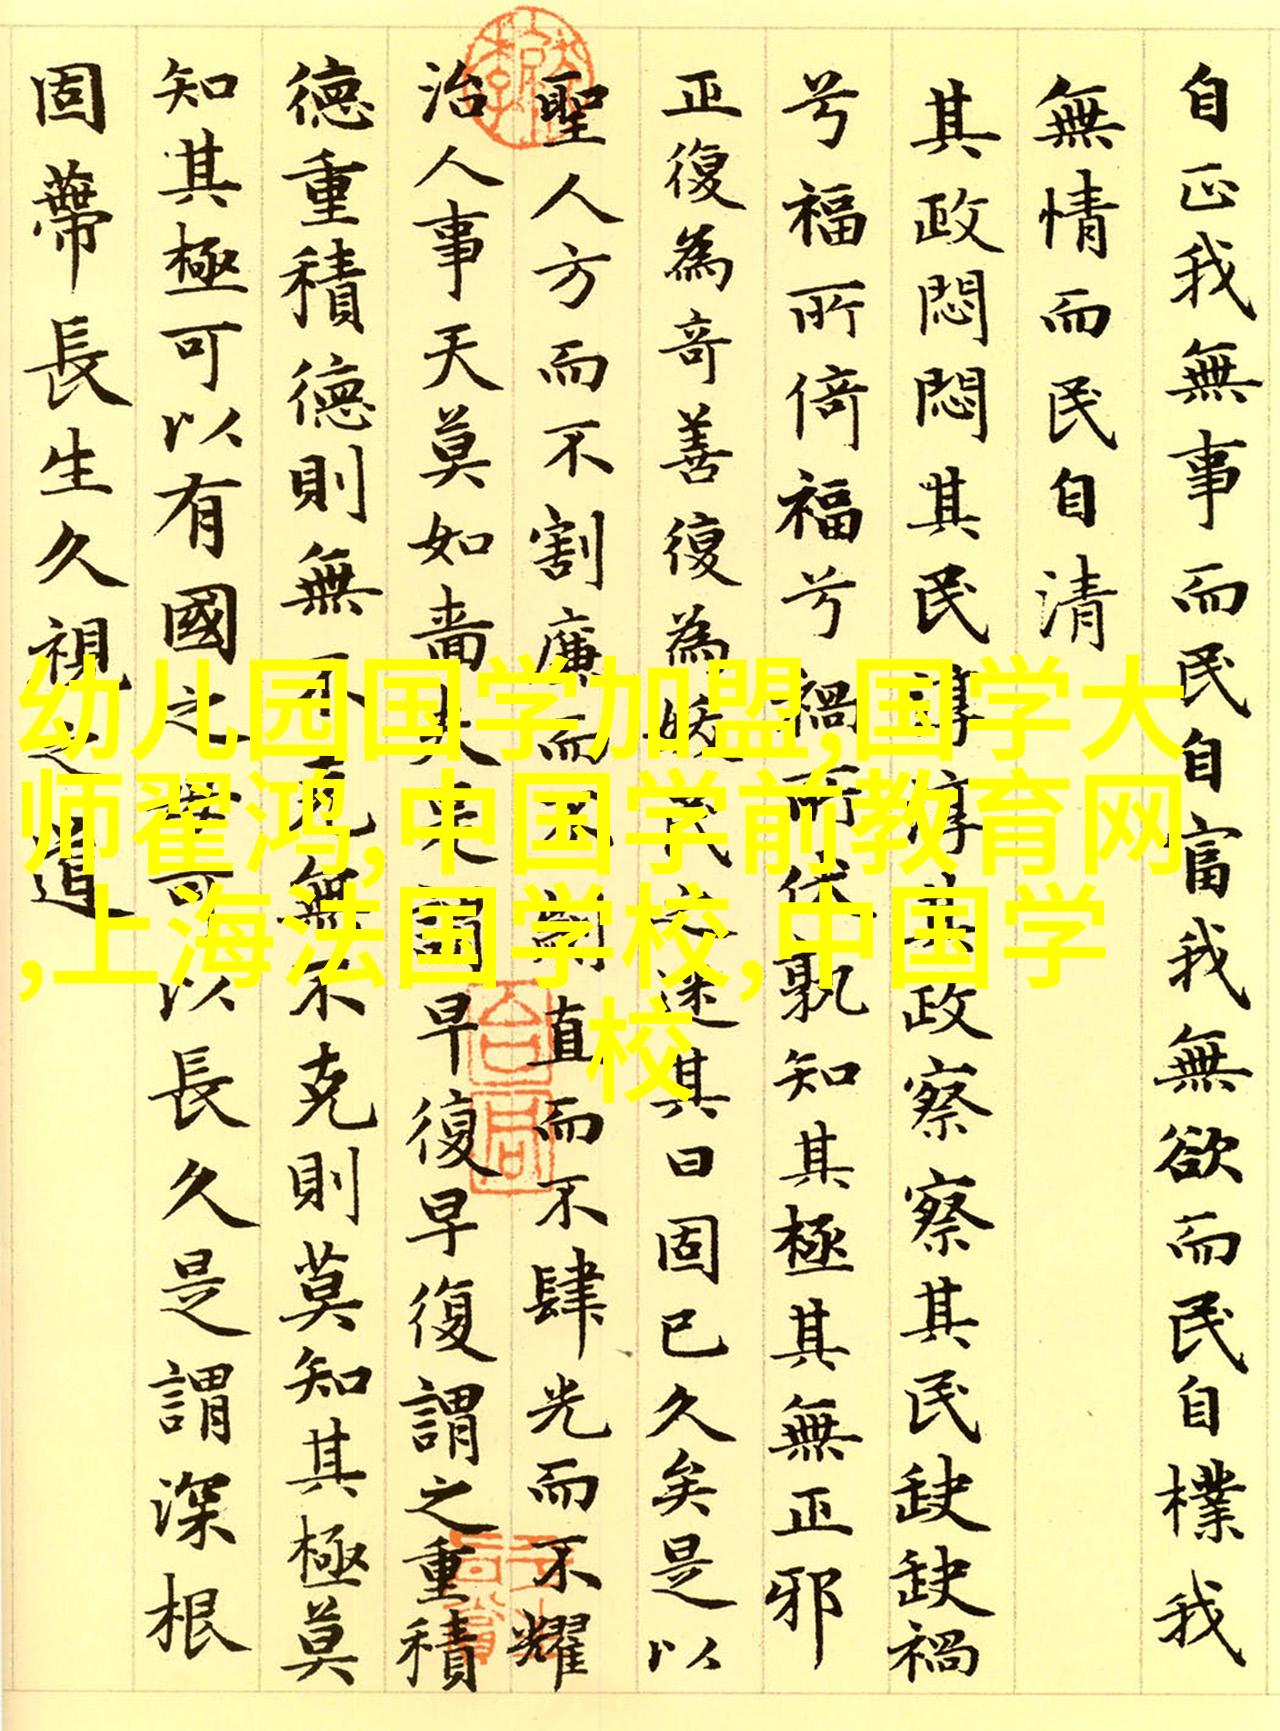 自正我無事而民自富我無欲而民自樸我
無情而民自清
其政悶悶其民淳淳其政察察其民缺缺禍
兮福所倚福兮禍所伏孰知其極其無正邪
正復為奇善復為妖民之迷其日固已久矣是以
聖人方而不割廉而不劌直而不肆光而不耀
治人事天莫如嗇夫是謂早復早復謂之重積
德重積德則無不克無不克則莫知其極莫
知其極可以有國之母可以長久是謂深根
固蔕長生久視之道
幼儿园国学加盟,国学大
师翟鸿,中国学前教育网
,上海法国学校,中国学
校